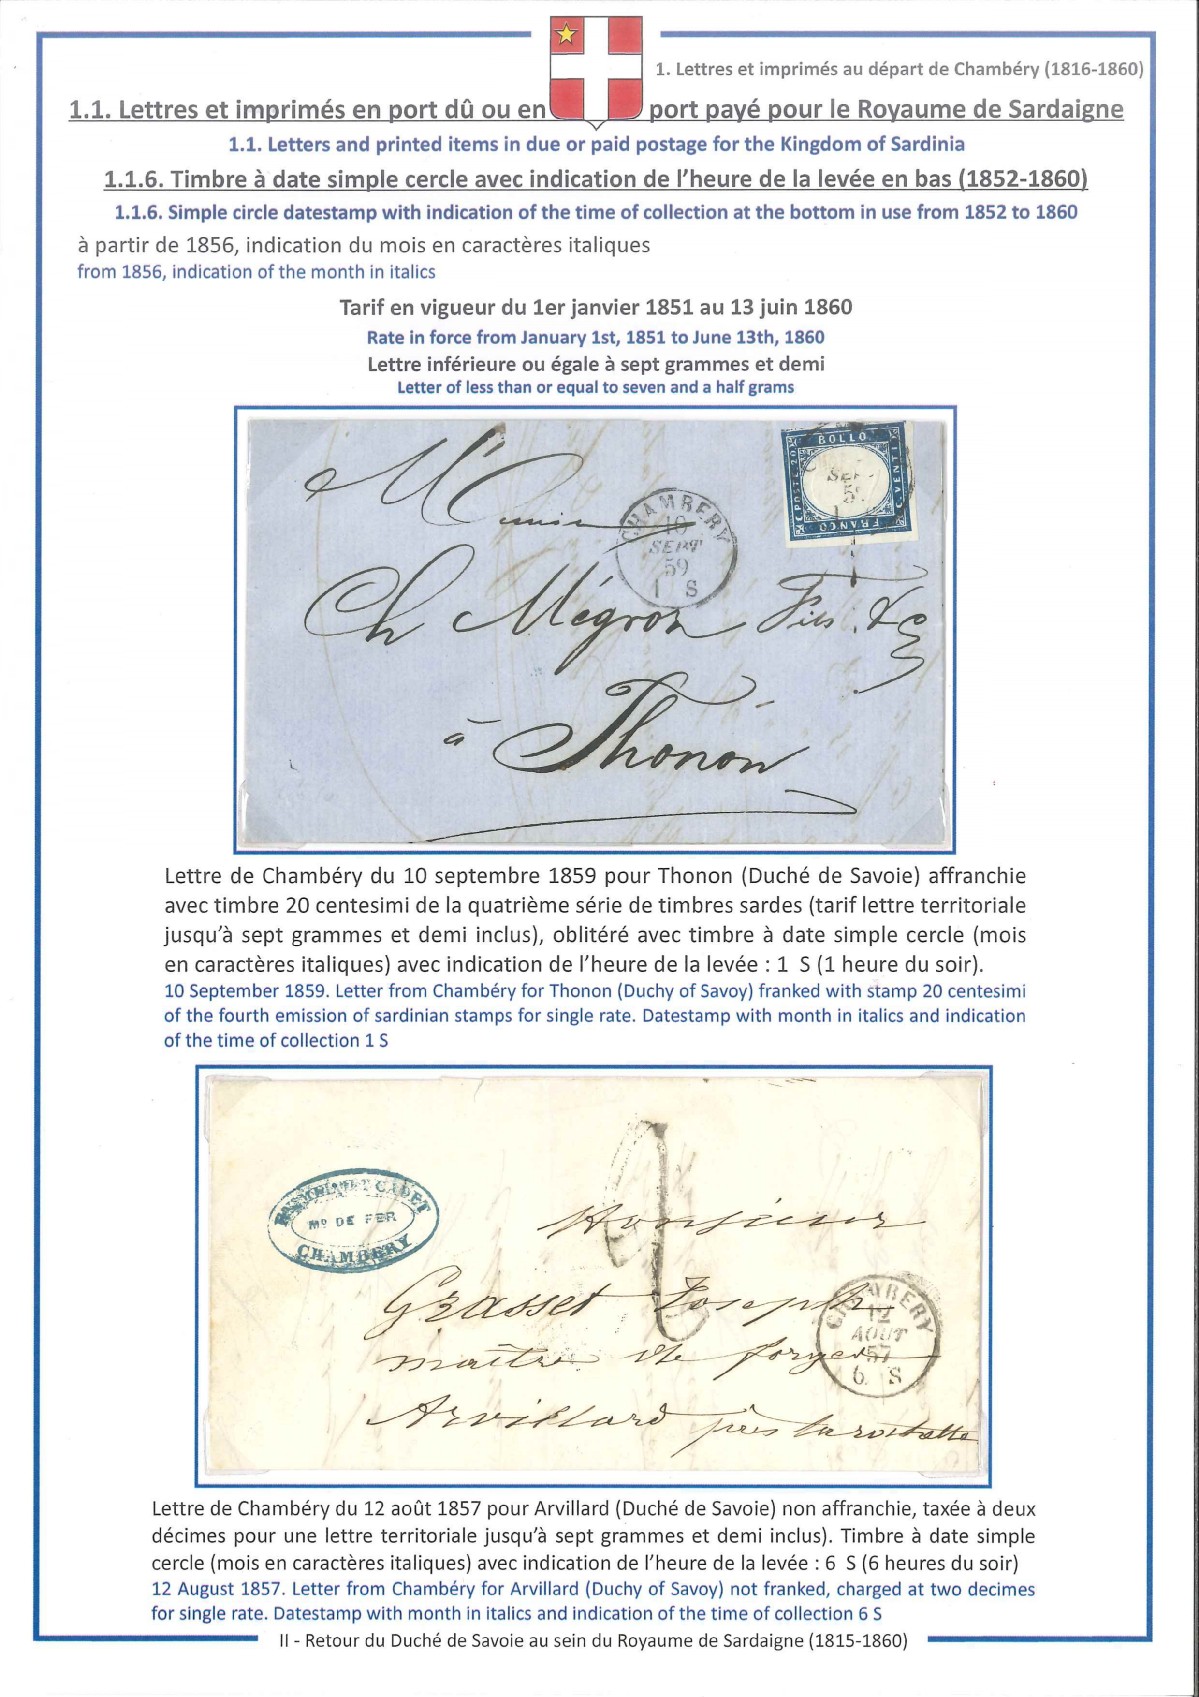 1. Lettres et imprimés au départ de Chambéry (1816-1860)
1.1. Lettres et imprimés en port dû ou en port payé pour le Royaume de Sardaigne
1.1. Letters and printed items in due or paid postage for the Kingdom of Sardinia
1.1.6. Timbre à date simple cercle avec indication de l'heure de la levée en bas (1852-1860)
1.1.6. Simple circle datestamp with indication of the time of collection at the bottom in use from 1852 to 1860
à partir de 1856, indication du mois en caractères italiques
from 1856, indication of the month in italics
Tarif en vigueur du 1er janvier 1851 au 13 juin 1860
Rate in force from January 1st, 1851 to June 13th, 1860
Lettre inférieure ou égale à sept grammes et demi
Letter of less than or equal to seven and a half grams
BOLLO
POSTE 20
C. VENTI
FRANCO
SEP
5
CHAMBERY
10
SEPT
59
1 S
Ch Mégroz Fils &
à Thonon
Lettre de Chambéry du 10 septembre 1859 pour Thonon (Duché de Savoie) affranchie
avec timbre 20 centesimi de la quatrième série de timbres sardes (tarif lettre territoriale
jusqu'à sept grammes et demi inclus), oblitéré avec timbre à date simple cercle (mois
en caractères italiques) avec indication de l'heure de la levée : 1 S (1 heure du soir).
10 September 1859. Letter from Chambéry for Thonon (Duchy of Savoy) franked with stamp 20 centesimi
of the fourth emission of sardinian stamps for single rate. Datestamp with month in italics and indication
of the time of collection 1 S
CADET
Md DE FER
CHAMBERY
2
Monsieur
Grasset Joseph
CHAMBERY
12
AOUT
57
6 S
maître de forges
Arvillard près la rochette
Lettre de Chambéry du 12 août 1857 pour Arvillard (Duché de Savoie) non affranchie, taxée à deux
décimes pour une lettre territoriale jusqu'à sept grammes et demi inclus). Timbre à date simple
cercle (mois en caractères italiques) avec indication de l'heure de la levée : 6 S (6 heures du soir)
12 August 1857. Letter from Chambéry for Arvillard (Duchy of Savoy) not franked, charged at two decimes
for single rate. Datestamp with month in italics and indication of the time of collection 6 S
II - Retour du Duché de Savoie au sein du Royaume de Sardaigne (1815-1860)